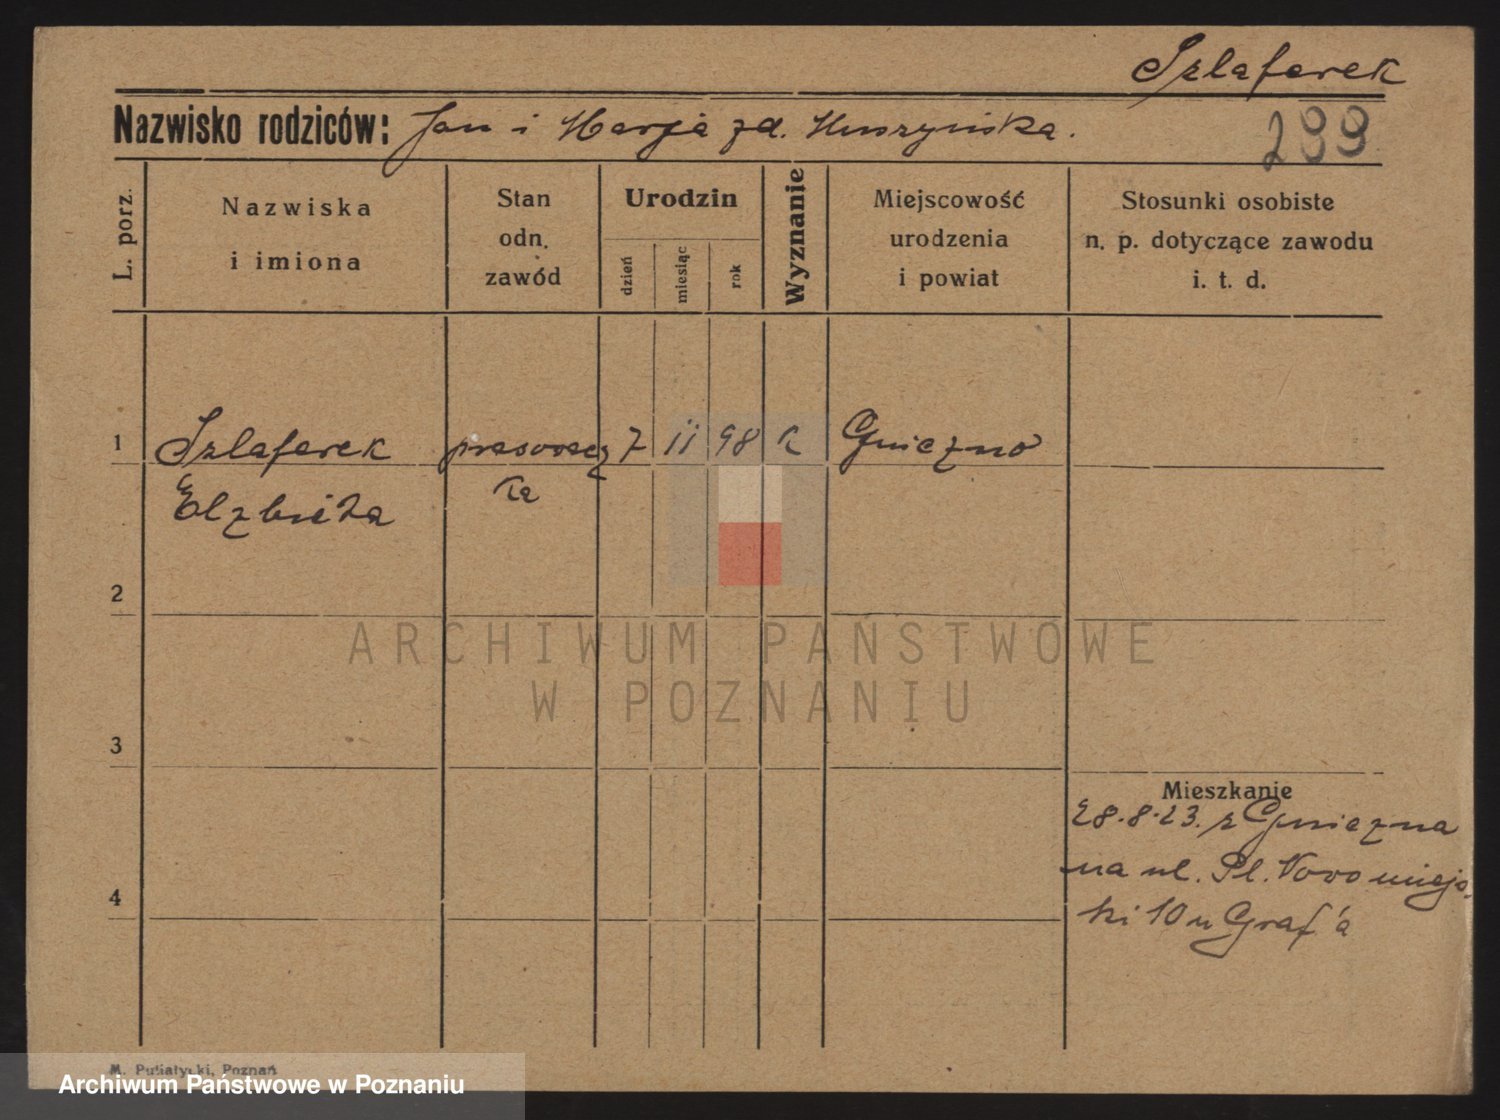 Szlaferek
Nazwisko rodziców: Jan i Marja zd.
299
L. porz.
Nazwiska
i imiona
Stan
odn.
zawód
Urodzin
dzień
miesiąc
rok
Wyznanie
Miejscowość
urodzenia
i powiat
Stosunki osobiste
n. p. dotyczące zawodu
i. t. d.
1
Szlaferek
prasowacz
7
ii
98
k
Gniezno
Elzbieta
ka
2
ARCHIWUM PAŃSTWOWE
W POZNANIU
3
Mieszkanie
28.8.23. z Gniezna
na ul. Pl. Nowomiejs
4
ki 10 u Graf'a
M. Putiatycki, Poznań
Archiwum Państwowe w Poznaniu